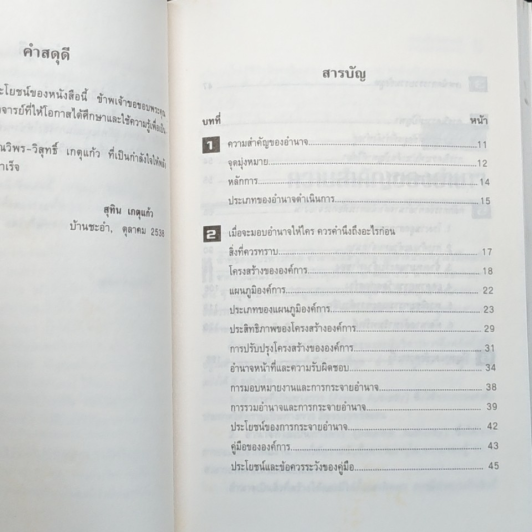 คำสดุดี
ะโยชน์ของหนังสือนี้ ข้าพเจ้าขอขอบพระคุณ
จารย์ที่ให้โอกาสได้ศึกษาและใช้ความรู้เพื่อเป็น
ณวิพร-วิสุทธิ์ เกตุแก้ว ที่เป็นกำลังใจให้
าเร็จ
สุพิน เกตุแก้ว
บ้านชะอำ, ตุลาคม 2538
สารบัญ
บทที่ หน้า
1 ความสำคัญของอำนาจ 11
จุดมุ่งหมาย 12
หลักการ 14
ประเภทของอำนาจดำเนินการ 15
2 เมื่อจะมอบอำนาจให้ใคร ควรคำนึงถึงอะไรก่อน
สิ่งที่ควรทราบ 17
โครงสร้างขององค์การ 18
แผนภูมิองค์การ 22
ประเภทของแผนภูมิองค์การ 23
ประสิทธิภาพของโครงสร้างองค์การ 29
การปรับปรุงโครงสร้างขององค์การ 31
อำนาจหน้าที่และความรับผิดชอบ 34
การมอบหมายงานและการกระจายอำนาจ 38
การรวมอำนาจและการกระจายอำนาจ 39
ประโยชน์ของการกระจายอำนาจ 42
คู่มือขององค์การ 43
ประโยชน์และข้อควรระวังของคู่มือ 45